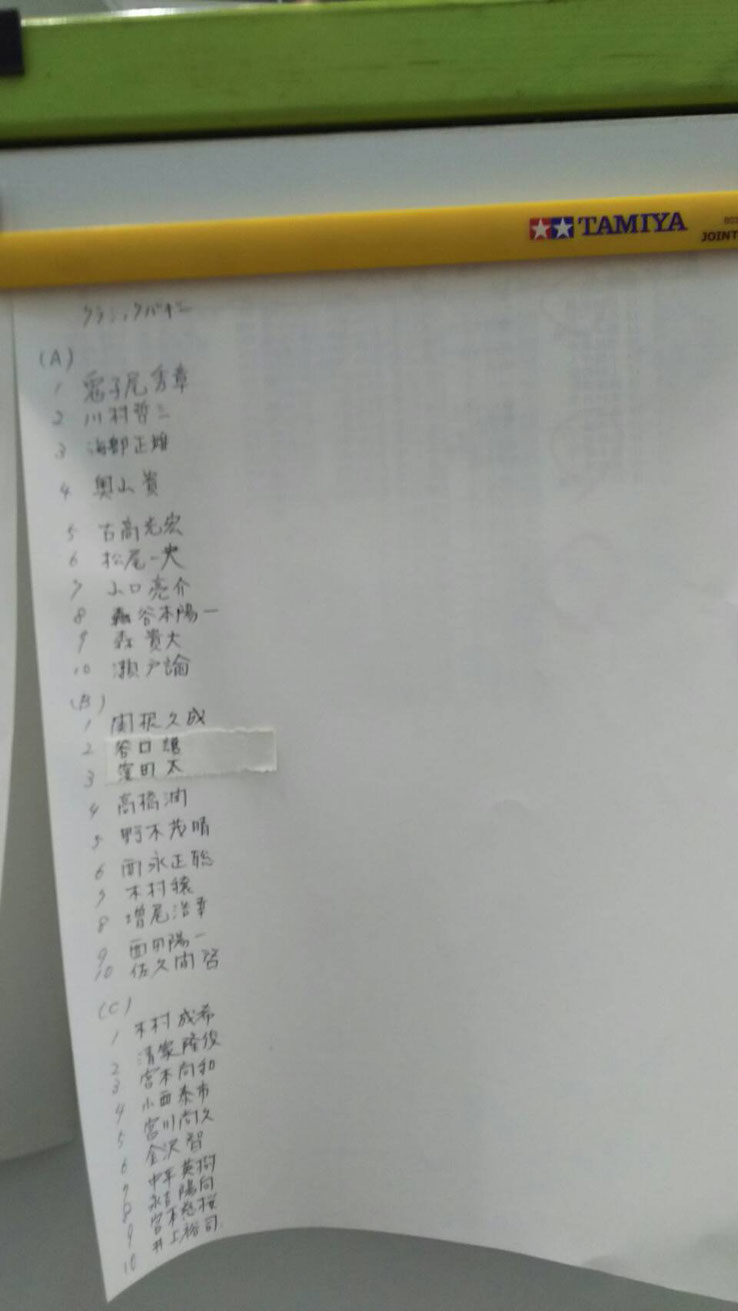 TAMIYA
JOINT
クラシックバギー
(A)
1 尾秀章
2 川村哲三
3 海部正雄
4 奥山貴
5 古高光宏
6 松尾一央
7 山口亮介
8 谷本陽一
9 森貴大
10 瀬戸諭
(B)
1 関根久成
2 谷口雄
3 窪田太
4 高橋潤
5 野木茂晴
6 西永正聡
7 木村
8 増尾浩幸
9 西田陽一
10 佐久間啓
(C)
1 木村成希
2 清家隆俊
3 宮本尚和
4 小西泰市
5 宮川尚久
6 金沢智
7 中平英樹
8 永吉陽向
9 宮本悠桜
10 井上裕司